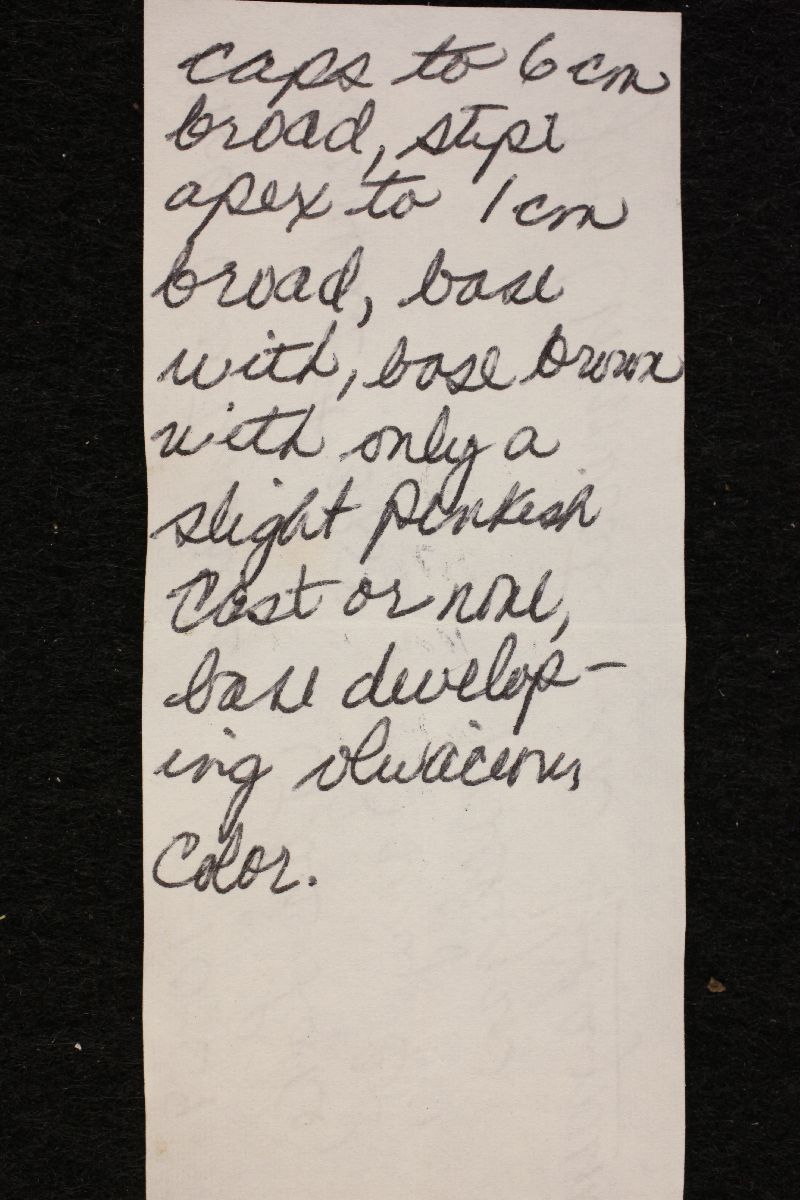 caps to 6 cm
broad, stipe
apex to 1 cm
broad, base
with, base brown
with only a
slight pinkish
cast or none,
base develop-
ing olivaceous
color.